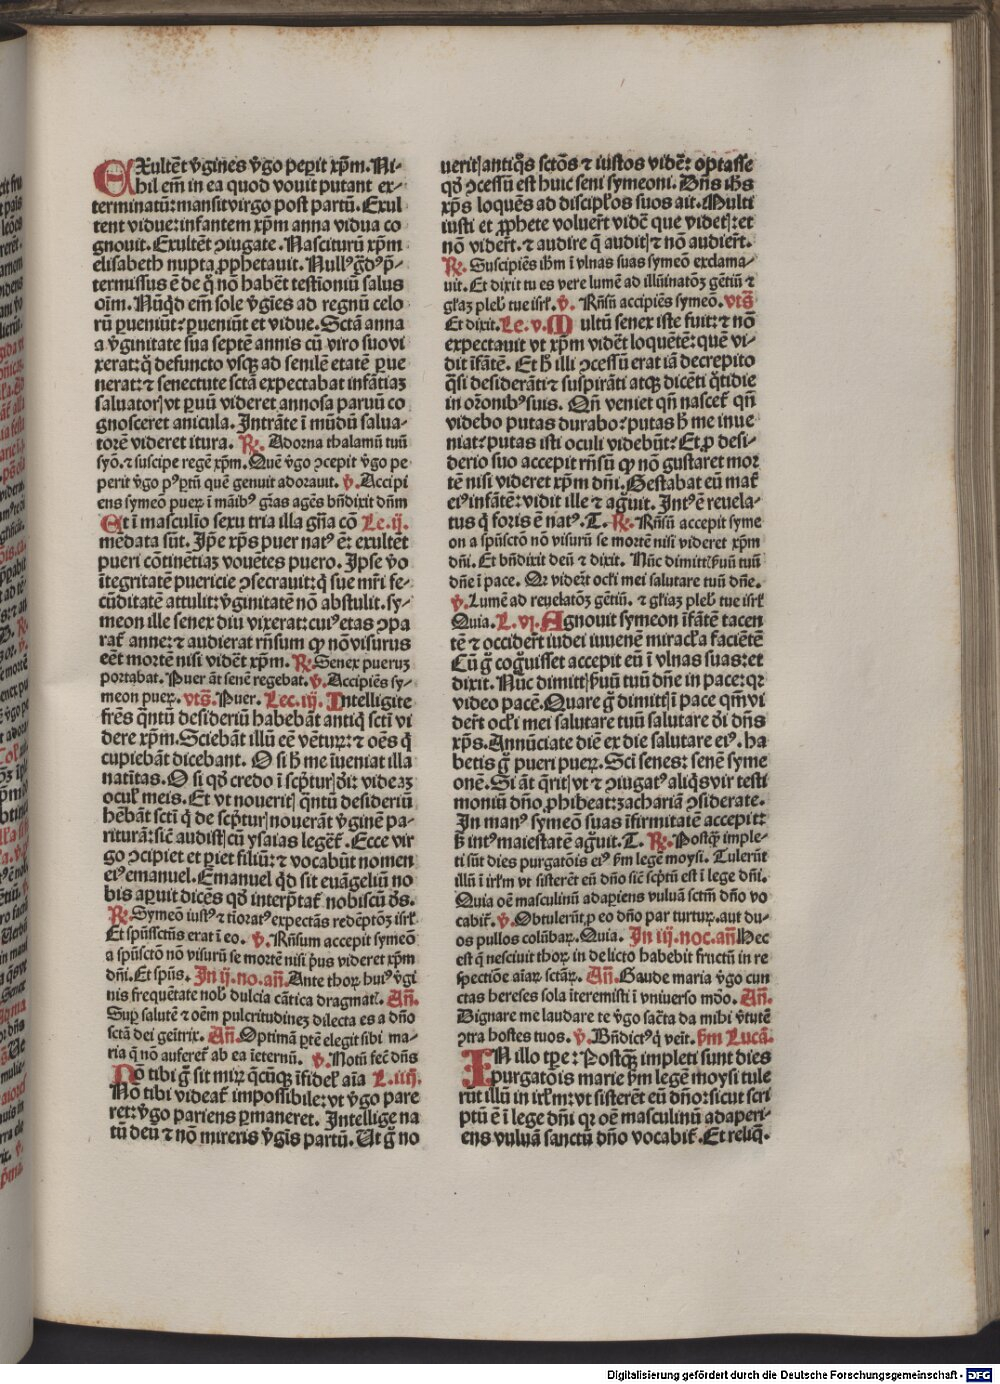 EXultēt v̄gines v̄go peꝑit xp̄m. Ni-
hil em̄ in ea quod vouit putant ex-
terminatū: mansit virgo post partū. Exul
tent vidue: infantem xp̄m anna vidua co
gnouit. Exultēt ꝯiugate. Nasciturū xp̄m
elisabeth nupta ꝓphetauit. Nullꝰ gͣdꝰ p̄-
termissus ē de q̄ nō habēt testioniū salus
oīm. Nūqd em̄ sole v̄gīes ad regnū celo
rū ꝑueniūt? ꝑueniūt et vidue. Sctā anna
a v̄ginitate sua septē annis cū viro suo vi
xerat: q̄ defuncto vsqꝫ ad senilē etatē ꝑue
nerat: ⁊ senectute sctā expectabat infātiaꝫ
saluatorꝭ vt ꝑuū videret annosa paruū co
gnosceret anicula. Intrāte ī mūdū salua-
torē videret itura. R̄. Adorna thalamū tuū
syō. ⁊ suscipe regē xp̄m. Quē v̄go ꝯcepit v̄go pe
perit v̄go pꝰ ꝑtū quē genuit adorauit. v̄. Accipi
ens symeō pueꝝ ī māibꝰ gr̄as agēs bn̄dixit dn̄m
Et ī masculīo sexu tria illa gn̄a cō Le. ij.
mēdata sūt. Ip̄e xp̄s puer natꝰ ē: exultēt
pueri cōtinētiaꝫ vouētes puero. Ipse v̄o
ītegritatē puericie ꝯsecrauit: q̄ sue mr̄i fe-
cūditatē attulit: v̄ginitatē nō abstulit. sy-
meon ille senex diu vixerat: cuiꝰ etas ꝯpa
rat̄ anne: ⁊ audierat rn̄sum ꝙ nō visurus
eēt mortē nisi vidēt xp̄m. R̄. Senex pueruꝫ
portabat. Puer āt senē regebat. v̄. Accipiēs sy-
meon pueꝝ. vts̄. Puer. Lec. iij. Intelligite
frēs qͣntū desideriū habebāt antiqͥ sctī vi
dere xp̄m. Sciebāt illū eē vētuꝝ: ⁊ oēs qͥ
cupiebāt dicebant. O si h̄ me īueniat illa
natītas. O si qd̄ credo ī sc̄pturꝭ dī: videaꝫ
ocul̄ meis. Et vt noueritꝭ qͣntū desideriū
hēbāt sctī qͥ de sc̄pturꝭ nouerāt v̄ginē pa-
riturā: siē audistꝭ cū ysaias legēt̄. Ecce vir
go ꝯcipiet et ꝑiet filiū: ⁊ vocabūt nomen
eiꝰ emanuel. Emanuel qd̄ sit euāgeliū no
bis aꝑuit dicēs qd̄ interp̄tat̄ nobiscū ds̄.
R̄. Symeō iustꝰ ⁊ tīoratꝰ expectās redēptōꝫ isrl̄
Et spūssctn̄s erat ī eo. v̄. Rn̄sum accepit symeō
a spūsctō nō visurū se mortē nisi p̄us videret xp̄m
dn̄i. Et spūs. In ij. no. an̄. Ante thoꝝ huiꝰ v̄gi
nis frequētate nob̄ dulcia cātica dragmatꝭ. An̄.
Suꝑ salutē ⁊ oēm pulcritudineꝫ dilecta es a dn̄o
sctā dei geītrix. An̄. Optimā ꝑtē elegit sibi ma-
ria q̄ nō auferet̄ ab ea īeternū. v̄. Notū fec̄ dn̄s
NO tibi ḡ sit miꝝ q̄cūqꝫ īfidel̄ aīa L. iiij.
No tibi videat̄ impossibile: vt v̄go pare
ret: v̄go pariens ꝑmaneret. Intellige na
tū deū ⁊ nō mireris v̄gīs partū. Ut ḡ no
ueritꝭ antiqͦs sctōs ⁊ iustos vidēꝭ: optasse
qd̄ ꝯcessū est huic seni symeoni. Dn̄s ih̄s
xp̄s loquēs ad discipl̄os suos ait. Multi
iusti et ꝓphete voluer̄t vidē que videtꝭ: et
nō vider̄t. ⁊ audire q̄ auditꝭ ⁊ nō audier̄t.
R̄. Suscipiēs ih̄m ī vlnas suas symeō exclama-
uit. Et dixit tu es vere lumē ad illūinatōꝫ gētiū ⁊
gl̄iaꝫ plebꝭ tue isrl̄. v̄. Rn̄sū accipiēs symeō. vts̄
Et dixit. Le. v. Multū senex iste fuit: ⁊ nō
expectauit vt xp̄m vidēt loquētē: quē vi-
dit īfātē. Et h̄ illi ꝯcessū erat iā decrepito
qͣsi desiderāti ⁊ suspirāti atqꝫ dicēti qͦtidie
in or̄onibꝰ suis. Qn̄ veniet qn̄ nascet̄ qn̄
videbo putas durabo? putas h̄ me inue
niat? putas isti oculi videbūt? Et ꝓ desi-
derio suo accepit rn̄sū ꝙ nō gustaret mor
tē nisi videret xp̄m dn̄i. Gestabat eū mat̄
eiꝰ infātē: vidit ille ⁊ agͦuit. Intꝰ ē reuela-
tus qͥ foris ē natꝰ. T. R̄. Rn̄sū accepit syme
on a spūsctō nō visurū se mortē nisi videret xp̄m
dn̄i. Et bn̄dixit deū ⁊ dixit. Nūc dimittꝭ ẜuū tuū
dn̄e ī pace. Qꝛ vider̄t ocl̄i mei salutare tuū dn̄e.
v̄. Lumē ad reuelatōꝫ gētiū. ⁊ gl̄iaꝫ plebꝭ tue isrl̄
Quia. L. vj. Agnouit symeon īfātē tacen
tē ⁊ occider̄t iudei iuuenē miracl̄a faciētē
Cū ḡ cogͦuisset accepit eū ī vlnas suas: et
dixit. Nūc dimittꝭ ẜuū tuū dn̄e in pace: qꝛ
video pacē. Quare ḡ dimittꝭ ī pace qm̄ vi
der̄t ocl̄i mei salutare tuū salutare dī dn̄s
xp̄s. Annūciate diē ex die salutare eiꝰ. ha
betis ḡ pueri pueꝝ. Sci senes: senē syme
onē. Si āt qͣritꝭ vt ⁊ ꝯiugatꝰ aliqͥs vir testi
moniū dn̄o ꝓhibeat: zachariā ꝯsiderate.
In manꝰ symeō suas īfirmitatē accepit:
ẜ intꝰ maiestatē agͦuit. T. R̄. Postqͣ imple-
ti sūt dies purgatōis eiꝰ ẜm legē moysi. Tulerūt
illū ī irl̄m vt sisterēt eū dn̄o siē sc̄ptū est ī lege dn̄i.
Quia oē masculinū adapiens vuluā sctm̄ dn̄o vo
cabit̄. v̄. Obtulerūt ꝓ eo dn̄o par turtuꝝ. aut du-
os pullos colūbaꝝ. Quia. In iij. noc. an̄. Hec
est q̄ nesciuit thoꝝ in delicto habebit fructū in re
spectiōe aīaꝝ sctāꝝ. An̄. Gaude maria v̄go cun
ctas hereses sola īteremisti ī vniuerso mōo. An̄.
Dignare me laudare te v̄go sac̄ta da mihi v̄tutē
ꝯtra hostes tuos. v̄. Bn̄dictꝰ q̄ veīt. ẜm Lucā.
IN illo tꝑe: Postqͣꝫ impleti sunt dies
purgatōis marie ẜm legē moysi tule
rūt illū in irl̄m: vt sisterēt eū dn̄o: sicut scri
ptū ē ī lege dn̄i qꝛ oē masculinū adaperi-
ens vuluā sanctū dn̄o vocabit̄. Et reliqͣ.
Digitalisierung gefördert durch die Deutsche Forschungsgemeinschaft - DFG